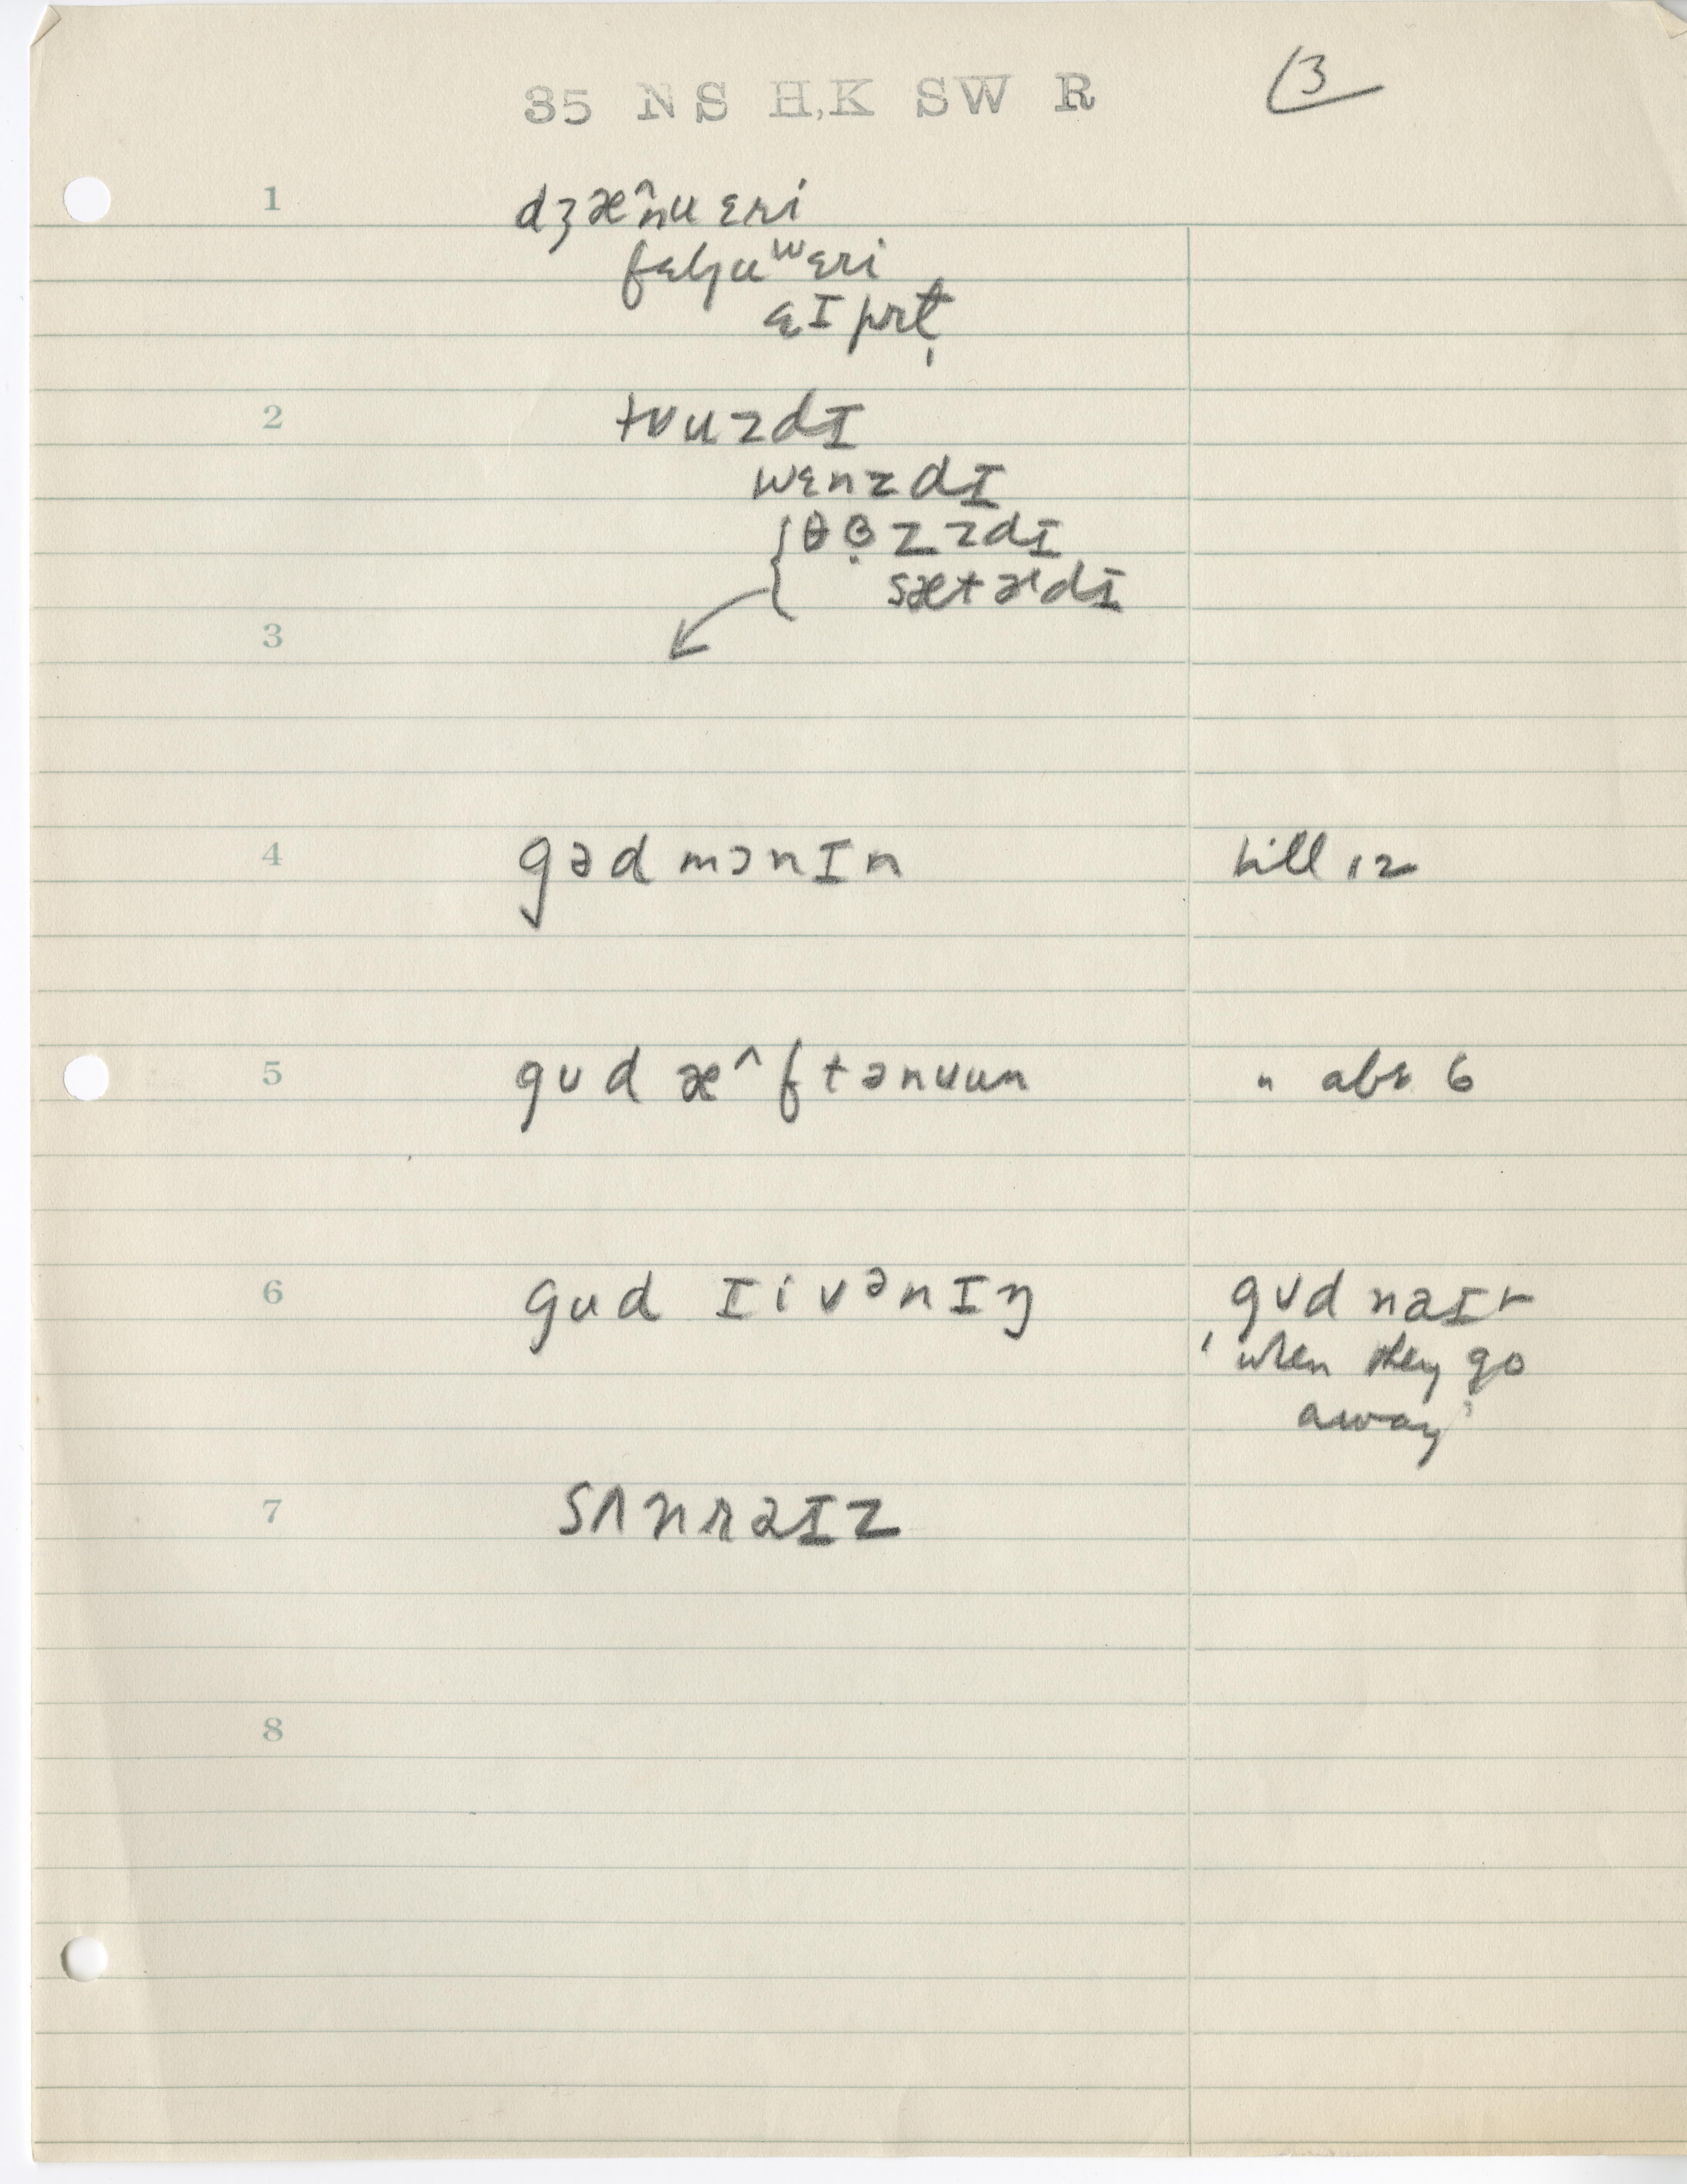 35 N S H,K SW R 3
1 dʒæ^nuɛri
fɛbjuʷɛri
ɛIprɪ̣l
2 tʊuzdI
wɛnzdI
θɜ̣zzdI
sætɚdI
3
4 gəd mɔnIn till 12
5 gʊd æ^ftənʊun " abt 6
6 gud IivənIŋ gʊd naIt
'when they go
away'
7 sʌnraIz
8